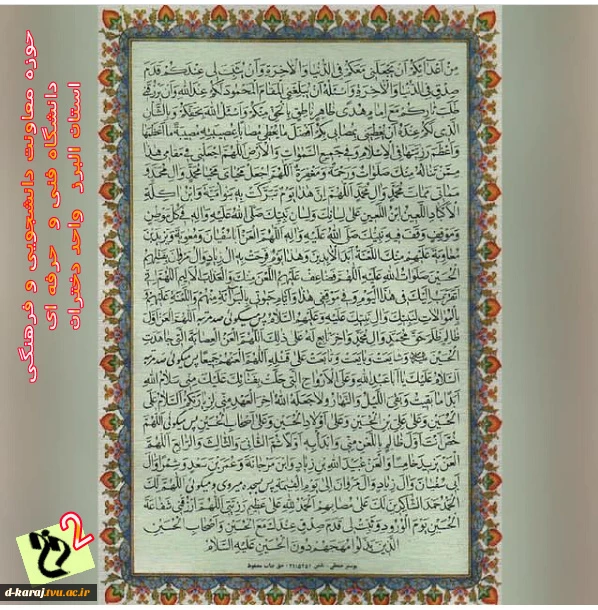 من أعدائكم أن يجعلني معكم في الدنيا والآخرة وأن يثبت لي عندكم قدم
صدق في الدنيا والآخرة وأسئله أن يبلغني المقام المحمود لكم عند الله وأن يرزقني
طلب ثاركم مع إمام هدى ظاهر ناطق بالحق منكم وأسئل الله بحقكم وبالشأن
الذي لكم عنده أن يعطيني بمصابي بكم أفضل ما يعطي مصابا بمصيبته مصيبة ما أعظمها
وأعظم رزيتها في الإسلام وفي جميع السموات والأرض اللهم اجعلني في مقامي هذا
ممن تناله منك صلوات ورحمة ومغفرة اللهم اجعل محياي محيا محمد وال محمد و
مماتي ممات محمد وال محمد اللهم إن هذا يوم تبركت به بنو أمية وابن اكلة
الأكباد اللعين ابن اللعين على لسانك ولسان نبيك صلى الله عليه واله في كل موطن
وموقف وقف فيه نبيك صلى الله عليه واله اللهم العن أبا سفيان ومعوية ويزيد بن
معاوية عليهم منك اللعنة أبد الآبدين وهذا يوم فرحت به ال زياد وال مروان بقتلهم
الحسين صلوات الله عليه اللهم فضاعف عليهم اللعن منك والعذاب الأليم اللهم إني
أتقرب إليك في هذا اليوم وفي موقفي هذا وأيام حيوتي بالبرائة منهم واللعنة عليهم
بالموالات لنبيك وال نبيك عليه وعليهم السلام پس میگوئی صد مرتبه اللهم العن أول
ظالم ظلم حق محمد وال محمد واخر تابع له على ذلك اللهم العن العصابة التي جاهدت
الحسين وشايعت وبايعت وتابعت على قتله اللهم العنهم جميعا پس میگوئی صد مرتبه
السلام عليك يا أبا عبد الله وعلى الأرواح التي حلت بفنائك عليك مني سلام الله
أبدا ما بقيت وبقي الليل والنهار ولا جعله الله اخر العهد مني لزيارتكم السلام على
الحسين وعلى علي بن الحسين وعلى أولاد الحسين وعلى أصحاب الحسين پس میگوئی اللهم
خص أنت أول ظالم باللعن مني وابدأ به أولا ثم الثاني والثالث والرابع اللهم
العن يزيد خامسا والعن عبيد الله بن زياد وابن مرجانة وعمر بن سعد وشمرا وال
أبي سفيان وال زياد وال مروان إلى يوم القيمة پس بسجده میروی و میگوئی اللهم لك
الحمد حمد الشاكرين لك على مصابهم الحمد لله على عظيم رزيتي اللهم ارزقني شفاعة
الحسين يوم الورود وثبت لي قدم صدق عندك مع الحسين وأصحاب الحسين
الذين بذلوا مهجهم دون الحسين عليه السلام
حوزه معاونت دانشجویی و فرهنگی
دانشگاه فنی و حرفه ای
استان البرز واحد دختران
2
d-karaj.tvu.ac.ir